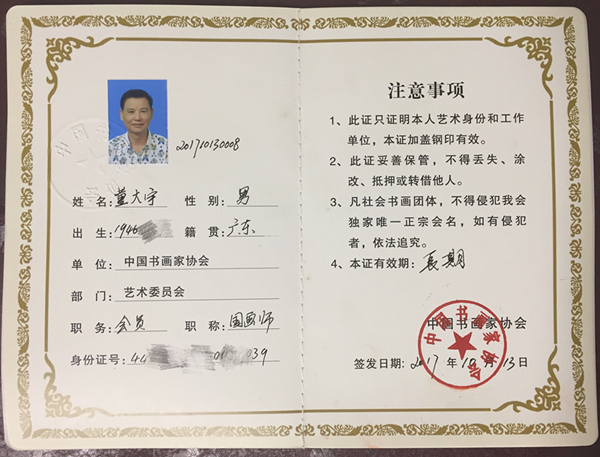 201710130008
姓名：董大宇 性别：男
出生：1946 籍贯：广东
单位：中国书画家协会
部门：艺术委员会
职务：会员 职称：国画师
身份证号：44 039
注意事项
1、此证只证明本人艺术身份和工作
单位，本证加盖钢印有效。
2、此证妥善保管，不得丢失、涂
改、抵押或转借他人。
3、凡社会书画团体，不得侵犯我会
独家唯一正宗会名，如有侵犯
者，依法追究。
4、本证有效期：长期
中国书画家协会
中国书画家协会
签发日期：2017年10月13日